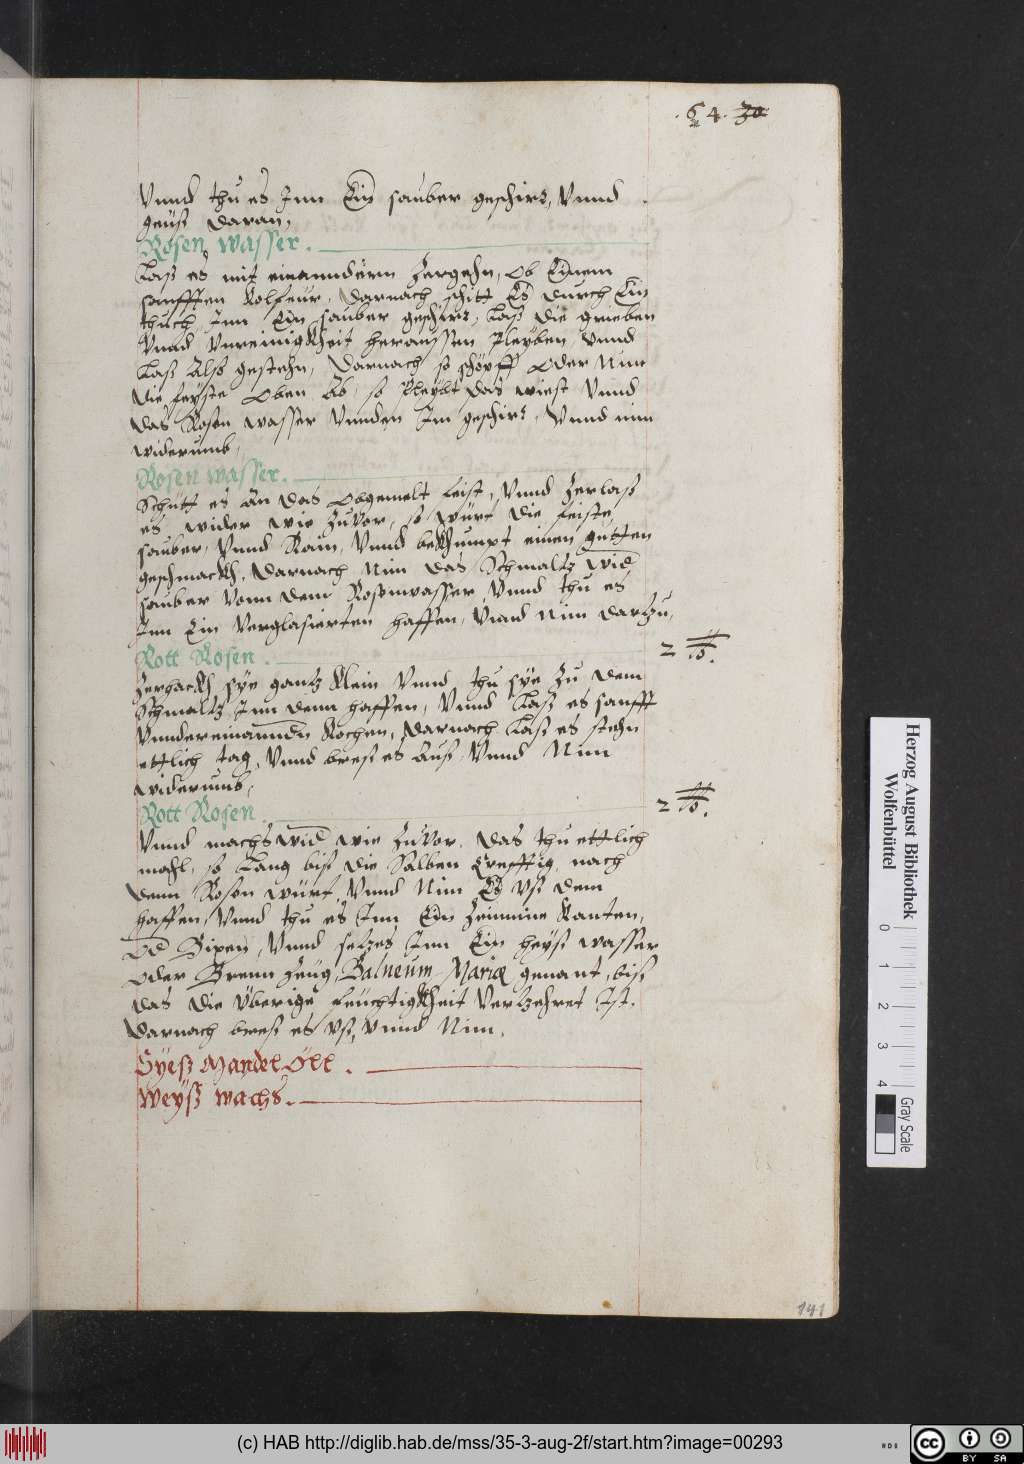 .64. 30
Vnnd thu es Inn Ein sauber geschirr, Vnnd
geuß daran,
Rosen wasser.
Laß es mit einannderm zergehn, ob Einem
sanfften Kolfeur, darnach schitt Es durch Ein
thuch Inn Ein sauber geschirr, Laß die grieben
Vnnd Vnreinigkheit heraussen Pleyben, Vnnd
Laß Also gestehn, darnach so schöpff oder Nim
die feyste oben Ab, so Pleybt das wiest Vnnd
das Rosen wasser Vnnden Im geschirr, Vnnd nim
widerumb,
Rosen wasser.
Schütt es An das obgemelt feist, Vnnd Zerlaß
es wider wie zuVor, so würt die feiste
sauber, Vnnd Rain, Vnnd bekhumpt einen gutten
geschmackh, darnach Nim das Schmaltz wid
sauber Vonn dem Roßenwasser Vnnd thu es
Inn Ein Verglasierten haffen, Vnnd Nim dartzu,
Rott Rosen. 2 lb.
Zerhackh sye gantz klein Vnnd thu sye Zu dem
Schmaltz Inn denn haffen, Vnnd Laß es sanfft
Vndereinannder Kochen, darnach Laß es stehn
ettlich tag, Vnnd bress es Auß Vnnd Nim
widerumb,
Rott Rosen. 2 lb.
Vnnd machs wid wie ZuVor, das thu ettlich
mahl, so Lang biß die Salben Creffttig nach
denn Rosen würt, Vnnd Nim Es vß dem
haffen, Vnnd thu es Inn Ein Zeinnine Kanten,
od Bixen, Vnnd setzes Inn Ein heyß wasser
oder Brenn Zeüg, Balneum Mariæ genant, biß
das die Überige feüchtigkheit Vertzehret Ist.
darnach bress es vß, Vnnd Nim,
Syeß Mandel Öll.
Weyß wachs.
141
Herzog August Bibliothek
Wolfenbüttel
0 1 2 3 4
Gray Scale
(c) HAB http://diglib.hab.de/mss/35-3-aug-2f/start.htm?image=00293
cc BY SA